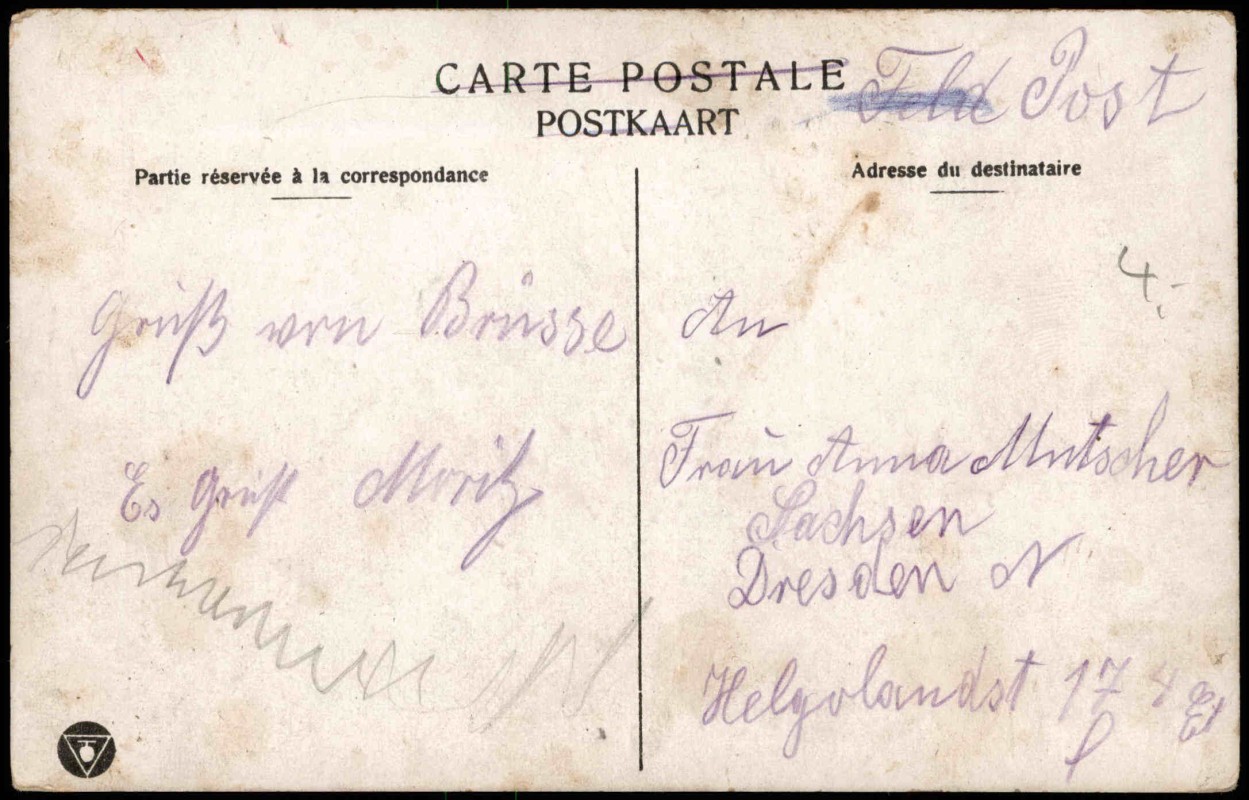 CARTE POSTALE
POSTKAART
Feld Post
Partie réservée à la correspondance
Adresse du destinataire
4.-
Grüß von Brüsse
Es Grüßt Moritz
An
Frau Anna Mutscher
Sachsen
Dresden N
Helgolandst 17 4 Et